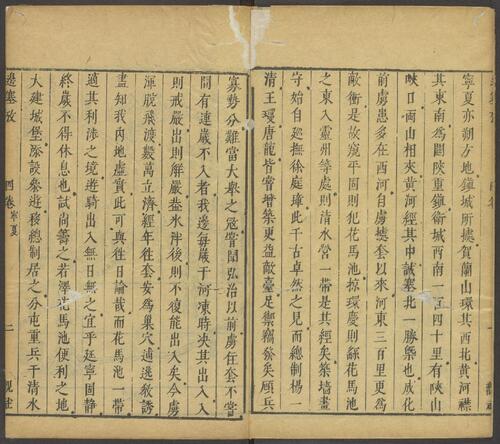 寧夏亦朔方地鎮城所據賀蘭山環其西北黃河襟
其東南為關陝重鎮衛城西南一百四十里有陜山
峽口兩山相夾黃河經其中誠塞北一勝槩也成化
前虜患多在西河自虜據套以來河東三百里更為
敵衝是故窺平固則犯花馬池掠環慶則繇花馬池
之東入靈州等處則清水營一帶是其經矣築墻畫
守始自巡撫徐庭璋此千古卓然之見而總制楊一
清王瓊唐龍皆嘗增築更益敵臺足禦竊發矣顧兵
寡勢分難當大舉之冦嘗聞弘治以前虜住套不嘗
間有連歲不入者我邊每歲于河凍時決其出入入
則戒嚴出則解嚴盖氷泮後則不復能出入矣今虜
渾脫飛渡數萬立濟經年住套安為巢穴逋逃教誘
盡知我內地虛實此可與往日論哉而花馬池一帶
適其利涉之境遊騎出入無日無之宜乎延寧固靜
終歲不得休息也試尚籌之若澤花馬池便利之地
大建城堡添設叅遊移總制居之分屯重兵于清水
邊塞攷
四卷寧夏
二